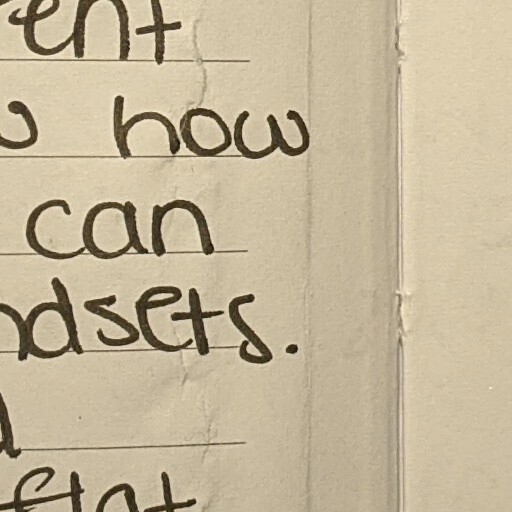 ent
how
can
ndsets.
flat